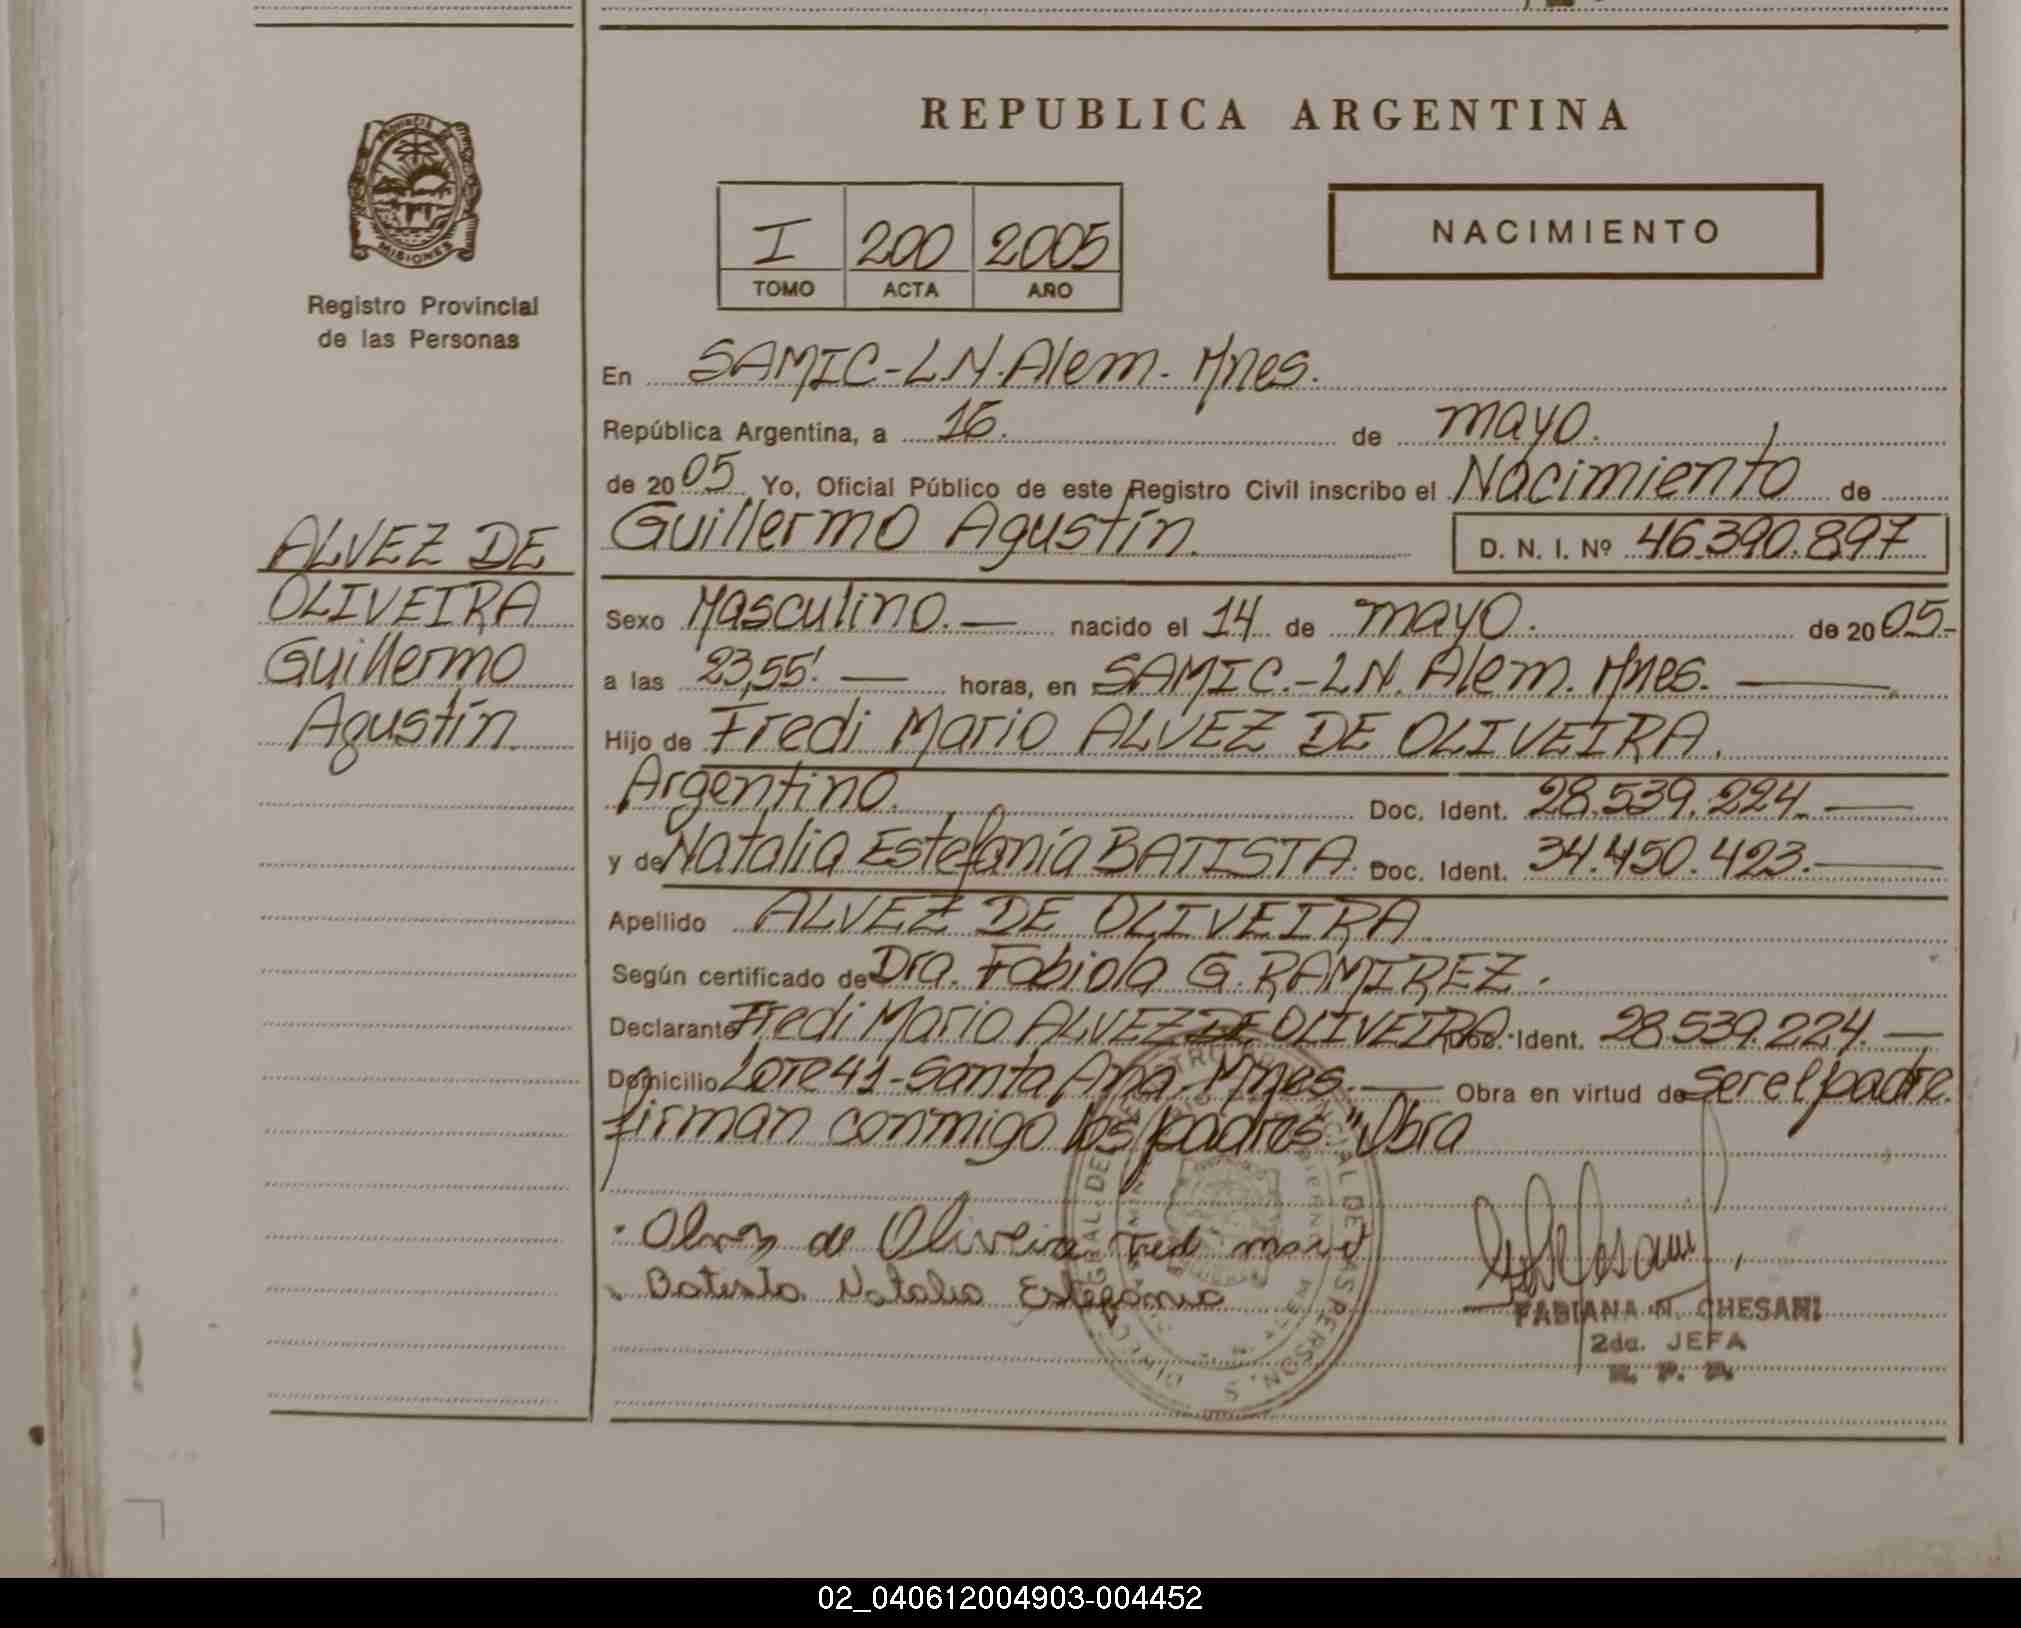 REPUBLICA ARGENTINA
PROVINCIA DE
MISIONES
Registro Provincial
de las Personas
I 200 2005
TOMO ACTA AÑO
NACIMIENTO
En SAMIC-LN.Alem. Mnes.
República Argentina, a 16. de mayo.
de 20 05 Yo, Oficial Público de este Registro Civil inscribo el Nacimiento de
Guillermo Agustín. D. N. I. Nº 46.390.897
ALVEZ DE
OLIVEIRA
Guillermo
Agustín.
Sexo Masculino. — nacido el 14 de mayo. de 20 05.-
a las 23,55'. — horas, en SAMIC.-LN. Alem. Mnes. —
Hijo de Fredi Mario ALVEZ DE OLIVEIRA.
Argentino. Doc. Ident. 28.539.224.—
y de Natalia Estefanía BATISTA. Doc. Ident. 34.450.423.—
Apellido ALVEZ DE OLIVEIRA
Según certificado de Dra. Fabiola G. RAMIREZ.
Declarante Fredi Mario ALVEZ DE OLIVEIRA Doc. Ident. 28.539.224.—
Domicilio Lote 41-Santa Ana. Mnes. — Obra en virtud de ser el padre.
firman conmigo los padres "Obra
de Oliveira Fred mario
Batista Natalia
FABIANA N. CHESANI
2da. JEFA
R. P. P.
02_040612004903-004452